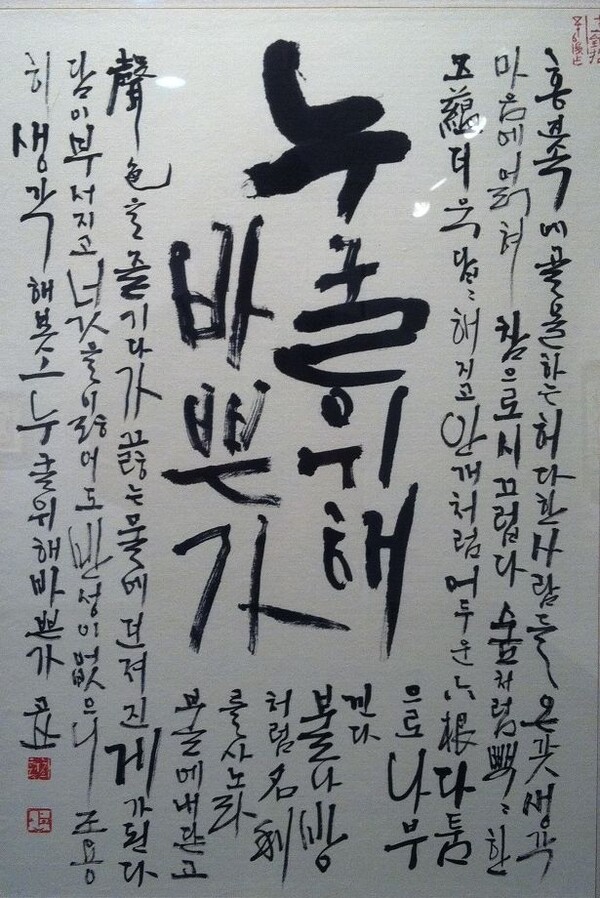 누굴위해
바쁜가
홍진속에골몰하는허다한사람들온갖생각
마음에얽혀참으로시끄럽다숲처럼빽빽한
五蘊더욱답답해지고안개처럼어두운六根다툼
으로나부
낀다
불나방
처럼名利
를사노라
내닫고
聲色을즐기다가끓는물에던져진게가된다
담이부서지고넋을잃어도반성이없으니조용
히생각 누굴위해바쁜가